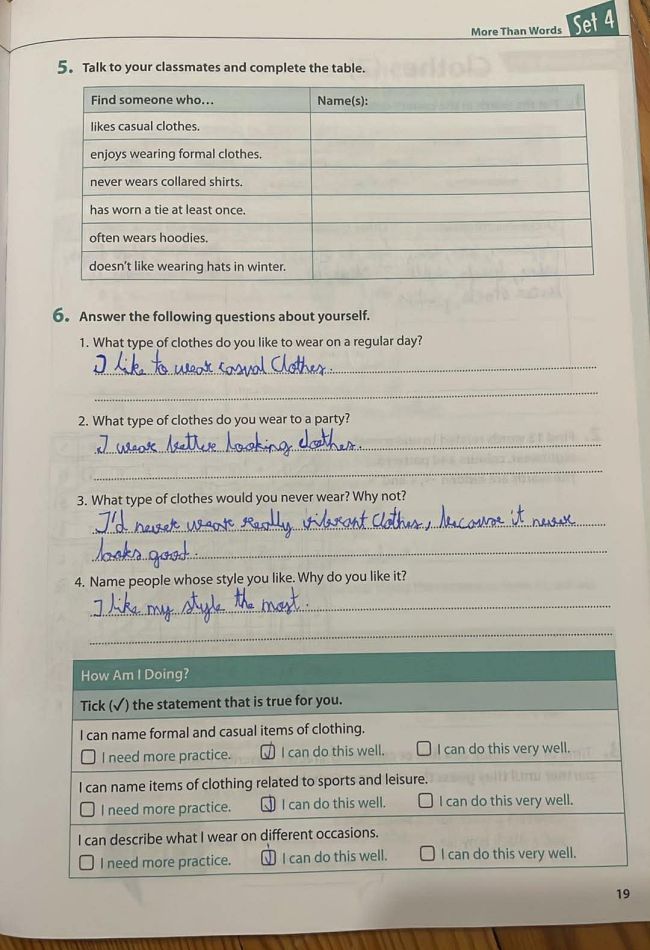 More Than Words Set 4
5. Talk to your classmates and complete the table.
Find someone who... Name(s):
likes casual clothes.
enjoys wearing formal clothes.
never wears collared shirts.
has worn a tie at least once.
often wears hoodies.
doesn't like wearing hats in winter.
6. Answer the following questions about yourself.
1. What type of clothes do you like to wear on a regular day?
I like to wear casual Clothes.
2. What type of clothes do you wear to a party?
I wear better looking clothes.
3. What type of clothes would you never wear? Why not?
I'd never wear really vibrant clothes, because it never
looks good.
4. Name people whose style you like. Why do you like it?
I like my style the most.
How Am I Doing?
Tick (✓) the statement that is true for you.
I can name formal and casual items of clothing.
I need more practice. I can do this well. I can do this very well.
I can name items of clothing related to sports and leisure.
I need more practice. I can do this well. I can do this very well.
I can describe what I wear on different occasions.
I need more practice. I can do this well. I can do this very well.
19